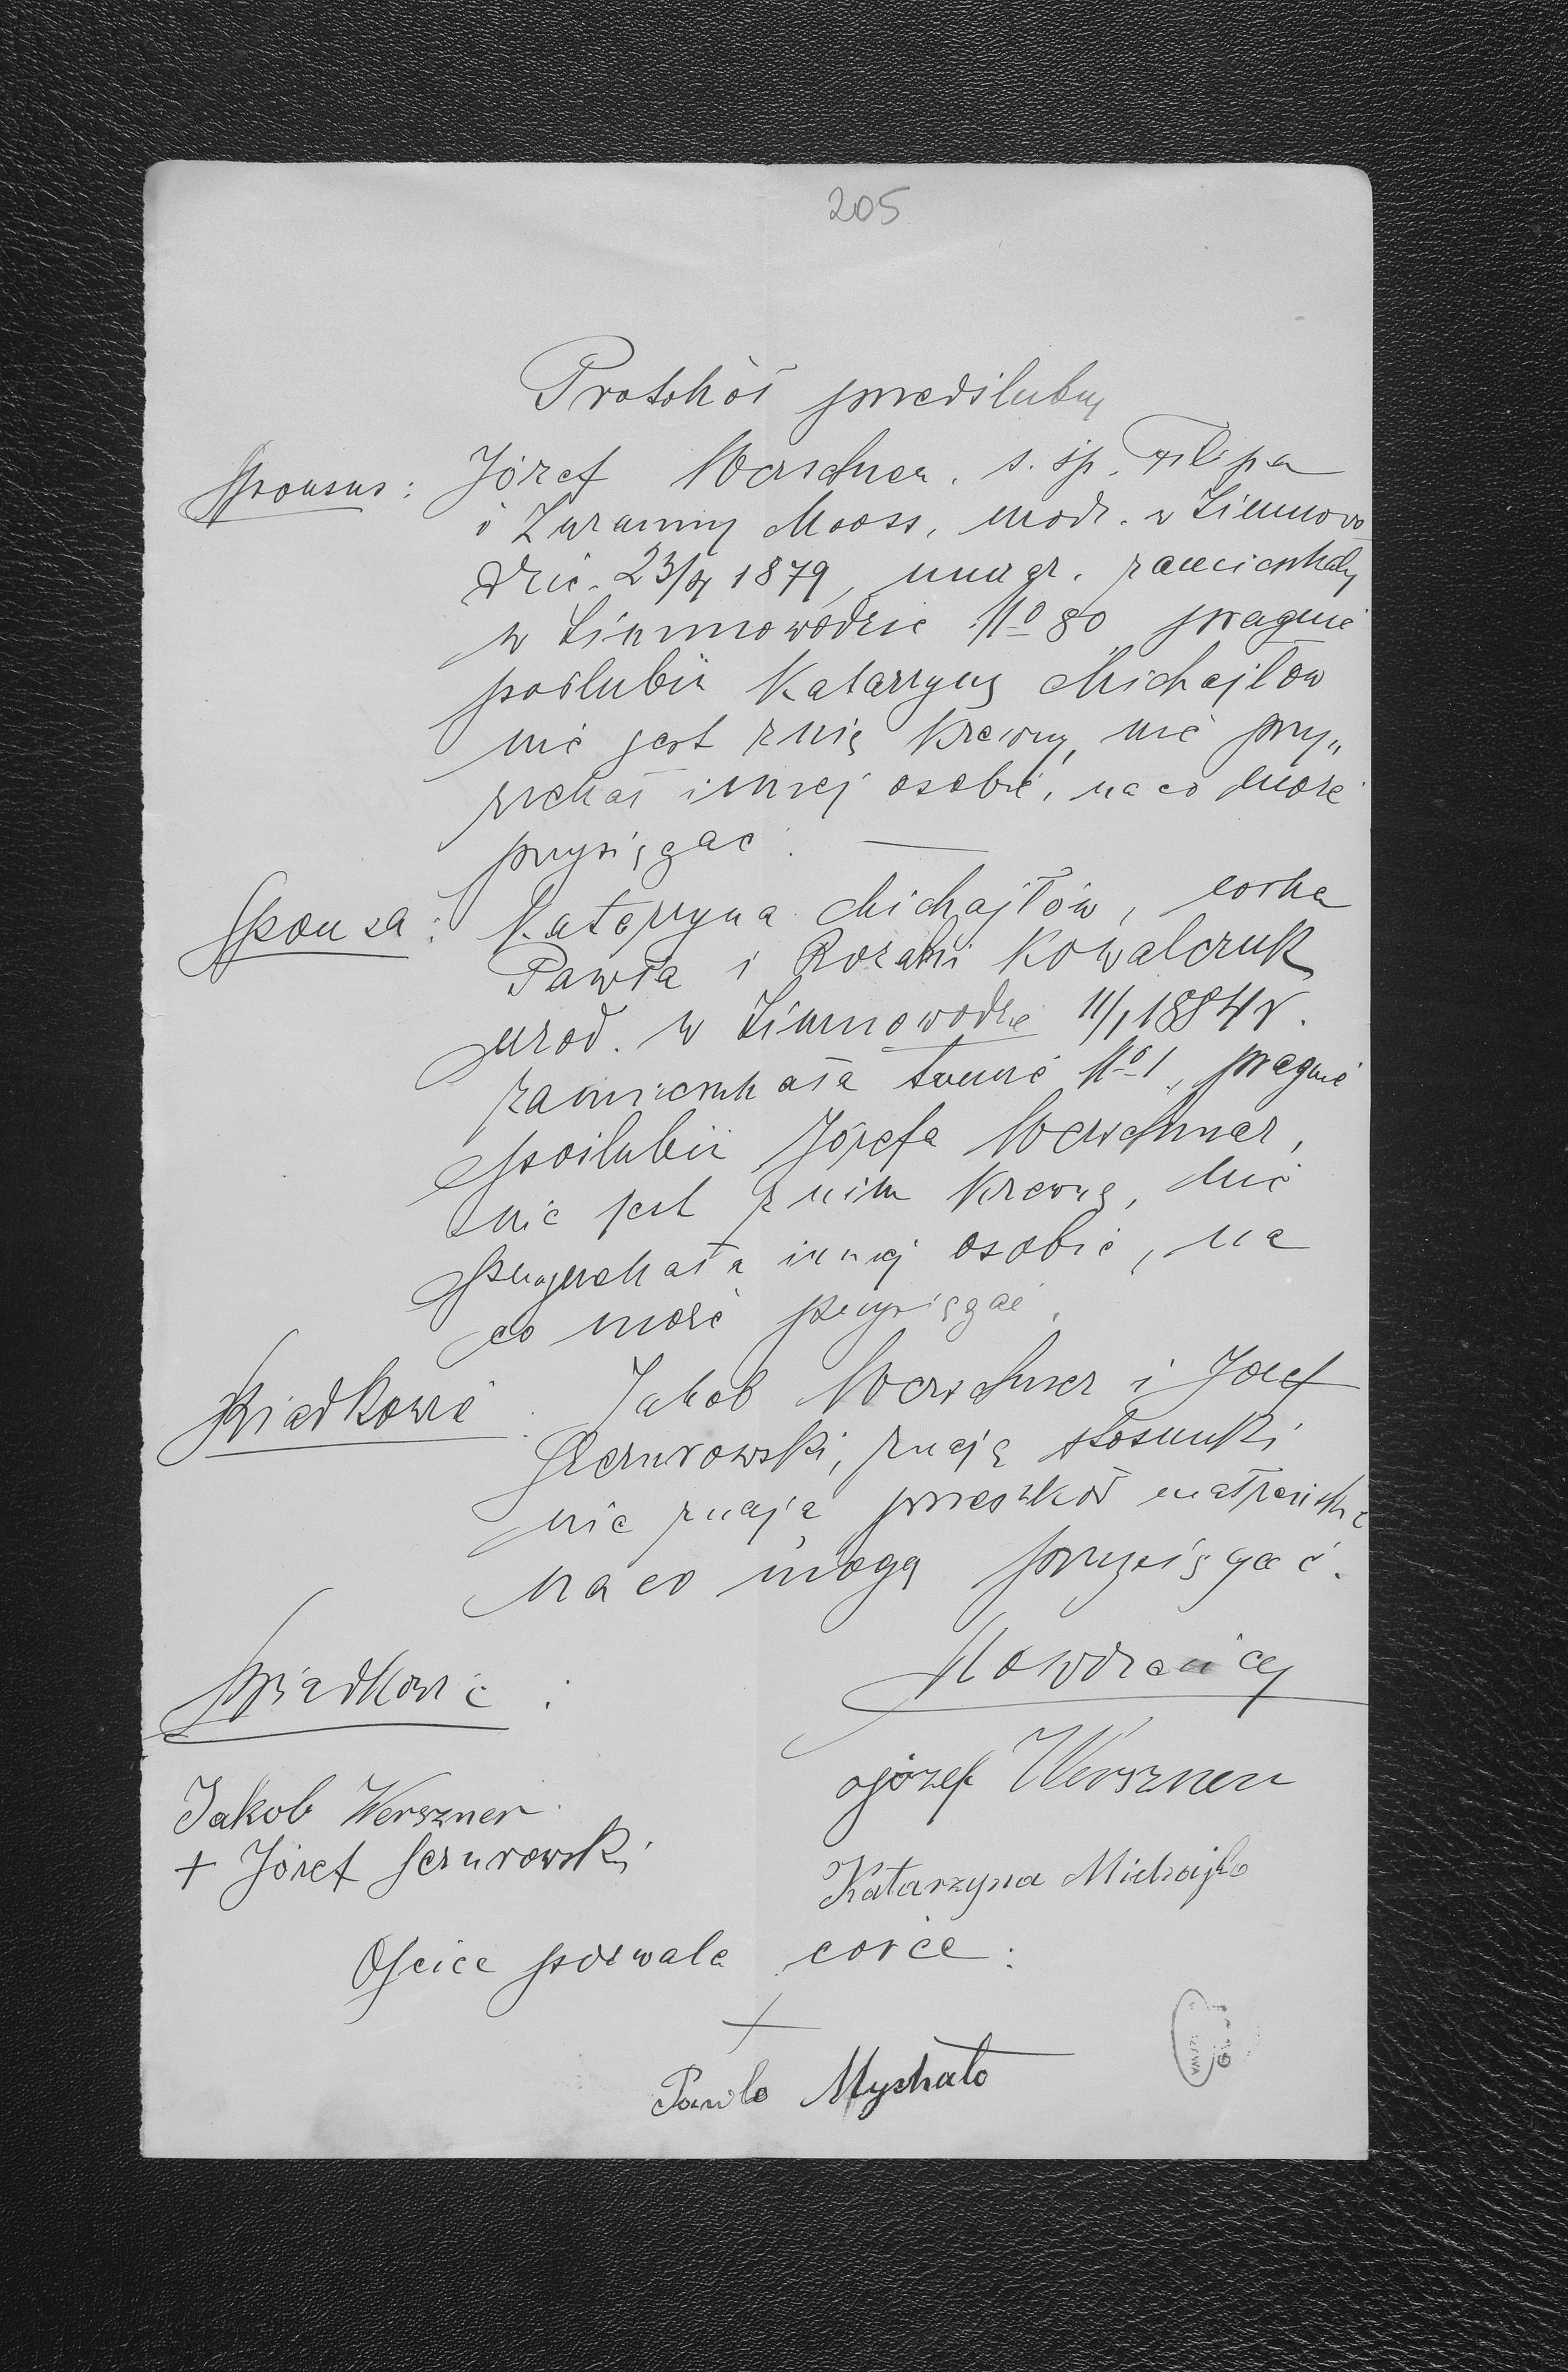 205
Protokół przedślubny
Sponsus: Józef Werschner. s. śp. Filipa
i Zuzanny Mooss, urodz. w Zimnowo
dzie. 23/4 1879, zamieszkały
w Zimnowodzie No 80 pragnie
poślubić Katarzynę Michajłów
nie jest z nią krewny, nie przy„
rzekał innej osobie, na co może
przysięgać. —
Sponsa: Katarzyna Michajłów, córka
Pawła i Rozalii Kowalczuk
urod. w Zimnowodzie 11/1 1884 r.
zamieszkała tamże No 1, pragnie
poślubić Józefa Werschner,
nie jest z nim krewną, nie
przyrzekała innej osobie, na
co może przysięgać.
Świadkowie: Jakob Werschner i Józef
Sczurowski, znają stosunki
nie znają przeszkód małżeńskie
na co mogą przysięgać.
Świadkowie: Nowożeńcy
Jakob Werszner Józef Werszner
+ Józef Sczurowski Katarzyna Michajło
Ojciec pozwala córce:
+
Pawlo Mychało